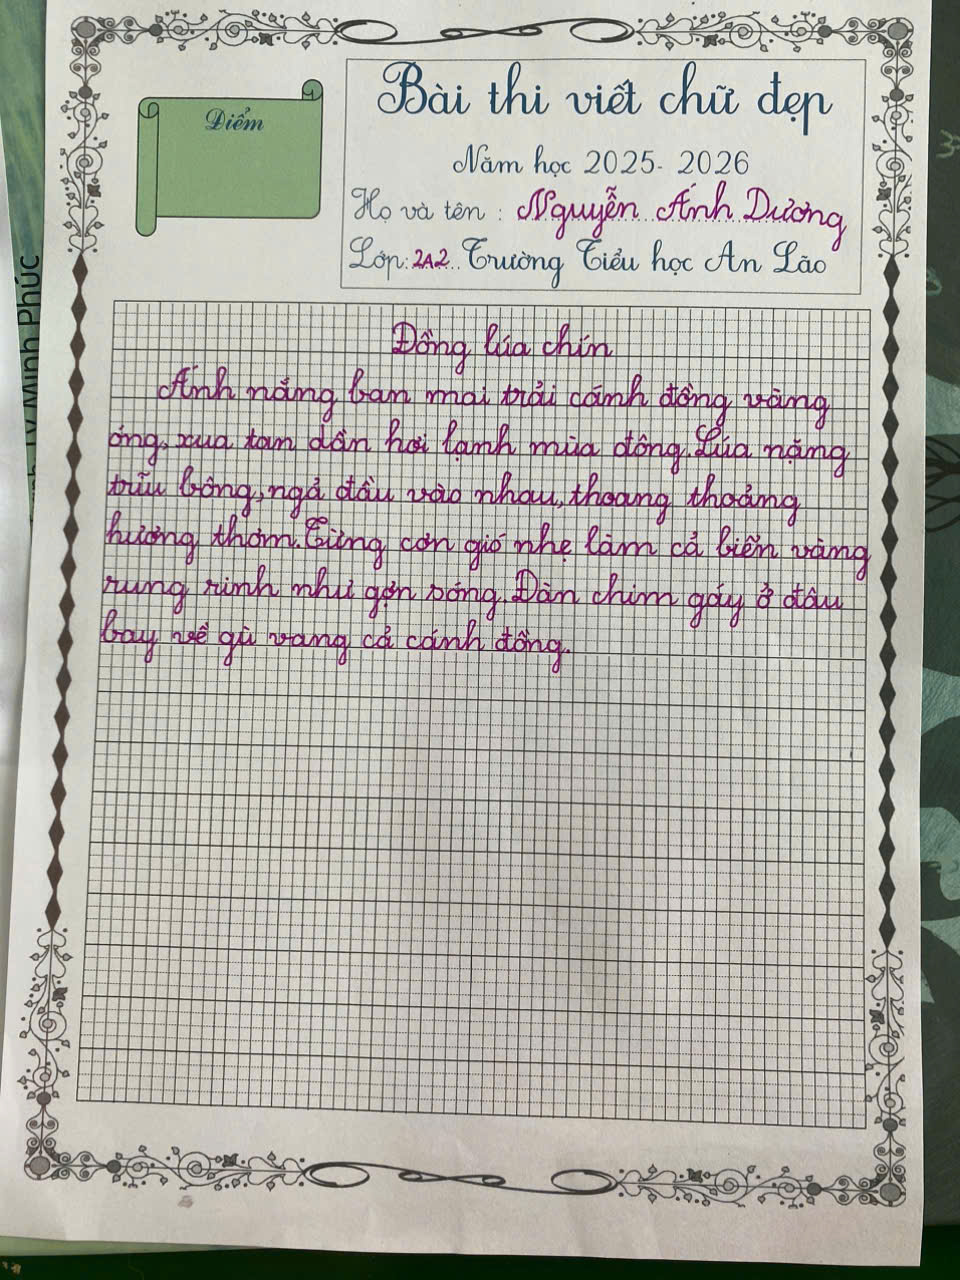 Điểm
Bài thi viết chữ đẹp
Năm học 2025- 2026
Họ và tên : Nguyễn Ánh Dương
Lớp: 2A2 Trường Tiểu học An Lão
Minh Phúc
Đồng lúa chín
Ánh nắng ban mai trải cánh đồng vàng
óng, xua tan dần hơi lạnh mùa đông. Lúa nặng
trĩu bông, ngả đầu vào nhau, thoang thoảng
hương thơm. Từng cơn gió nhẹ làm cả biển vàng
rung rinh như gợn sóng. Đàn chim gáy ở đâu
bay về gù vang cả cánh đồng.